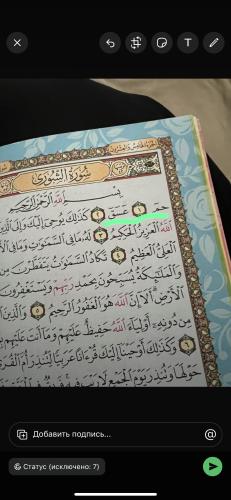 سُورَةُ الشُّورَىٰ
بِسْمِ اللَّهِ الرَّحْمَٰنِ الرَّحِيمِ
حم ١ عسق ٢ كَذَٰلِكَ يُوحِي إِلَيْكَ وَإِلَى الَّذِينَ
اللَّهُ الْعَزِيزُ الْحَكِيمُ ٣ لَهُ مَا فِي السَّمَاوَاتِ وَمَا فِي
الْعَلِيُّ الْعَظِيمُ ٤ تَكَادُ السَّمَاوَاتُ يَتَفَطَّرْنَ مِن
وَالْمَلَائِكَةُ يُسَبِّحُونَ بِحَمْدِ رَبِّهِمْ وَيَسْتَغْفِرُونَ
الْأَرْضِ أَلَا إِنَّ اللَّهَ هُوَ الْغَفُورُ الرَّحِيمُ ٥ وَالَّذِينَ
مِن دُونِهِ أَوْلِيَاءَ اللَّهُ حَفِيظٌ عَلَيْهِمْ وَمَا أَنتَ عَلَيْهِم
٦ وَكَذَٰلِكَ أَوْحَيْنَا إِلَيْكَ قُرْآنًا عَرَبِيًّا لِّتُنذِرَ أُمَّ الْقُرَىٰ
حَوْلَهَا وَتُنذِرَ يَوْمَ الْجَمْعِ لَا رَيْبَ فِيهِ
Добавить подпись...
Статус (исключено: 7)